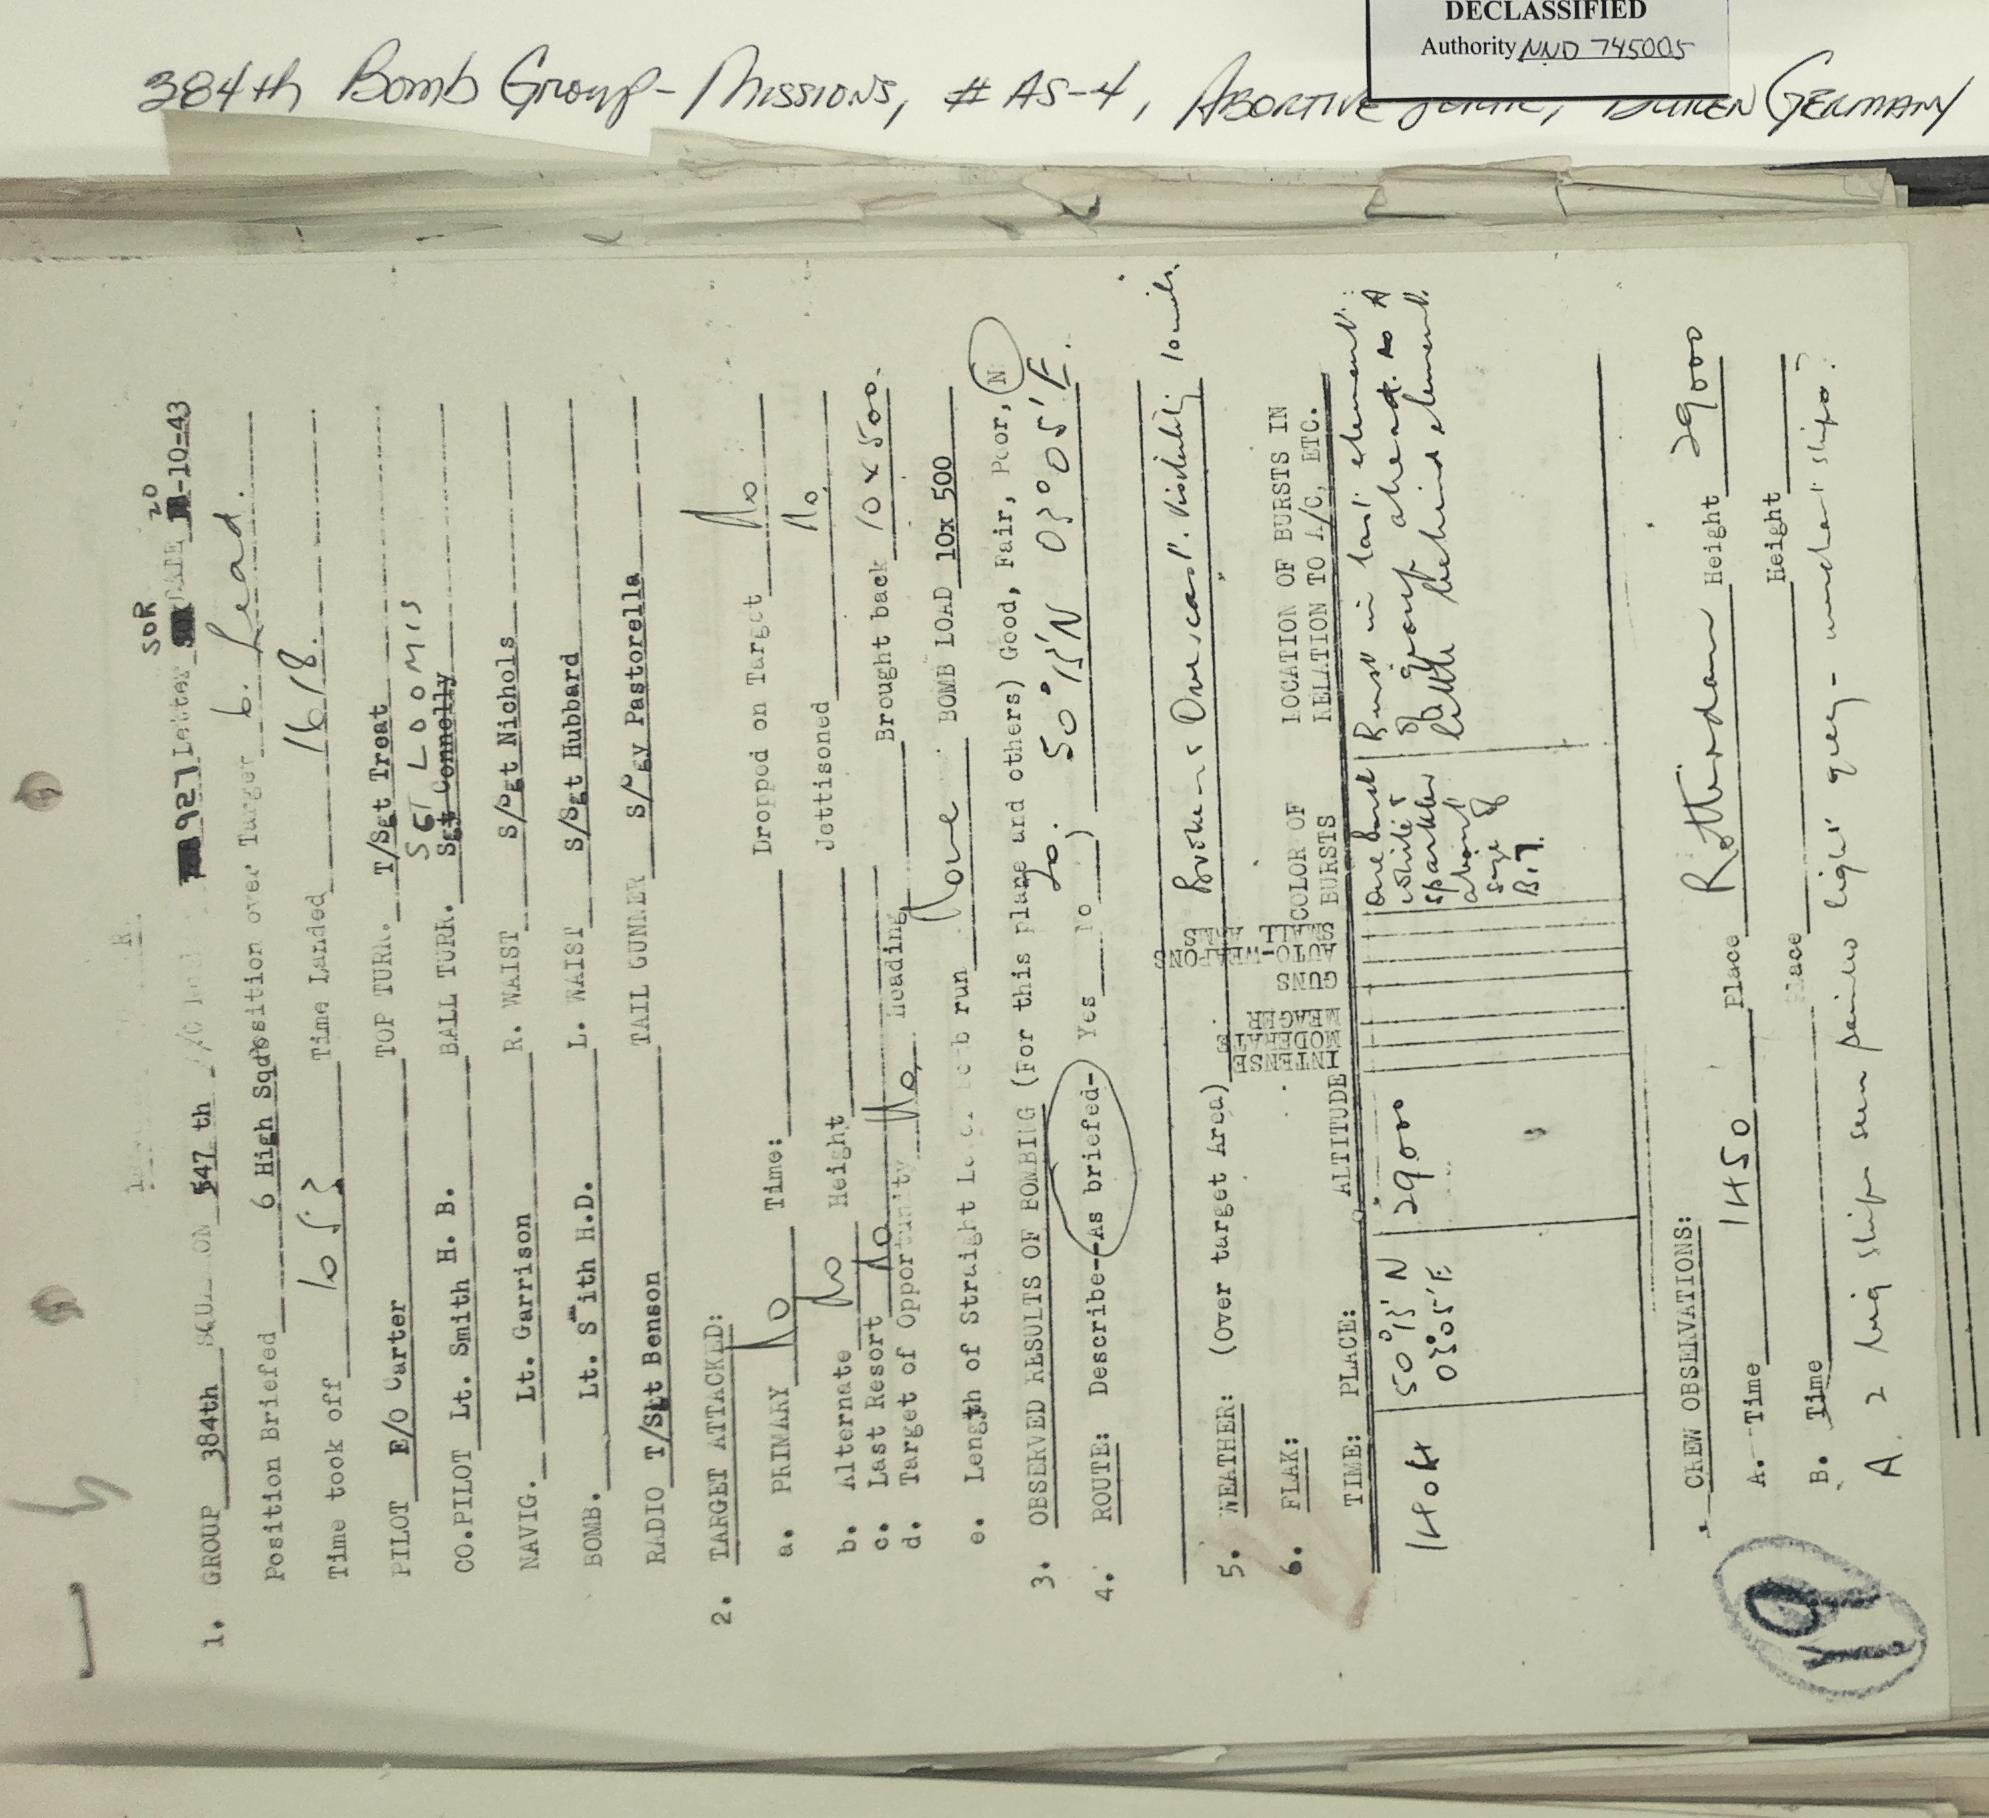 DECLASSIFIED
Authority NND 745005
384th Bomb Group - Missions, # AS-4, Abortive Germany
1. GROUP 384th SQUADRON 547 th A/C No. 927 Letter SOR DATE 20-10-43
Position Briefed 6 High Sqd Position over Target 6. Lead.
Time took off 1053 Time Landed 1618.
PILOT F/O Carter TOP TURR. T/Sgt Treat
SGT LOOMIS
CO.PILOT Lt. Smith H. B. BALL TURR. Sgt Connelly
NAVIG. Lt. Garrison R. WAIST S/Sgt Nichols
BOMB. Lt. Smith H.D. L. WAIST S/Sgt Hubbard
RADIO T/Sgt Benson TAIL GUNNER S/Sgt Pastorella
2. TARGET ATTACKED:
a. PRIMARY No Time: Dropped on Target No
b. Alternate No Height Jettisoned No.
c. Last Resort No Brought back 10 x 500.
d. Target of Opportunity No. Heading
e. Length of Straight Level Bomb run None. BOMB LOAD 10x 500
3. OBSERVED RESULTS OF BOMBING (For this plane and others) Good, Fair, Poor, N
4. ROUTE: Describe--As briefed-) Yes No ) To. 50°13'N 03°05'E.
5. WEATHER: (Over target Area) Broken & Overcast. Visibility 10 mils.
6. FLAK:
TIME: PLACE: ALTITUDE INTENSE MODERATE MEAGER GUNS AUTO-WEAPONS SMALL ARMS COLOR OF BURSTS LOCATION OF BURSTS IN RELATION TO A/C, ETC.
1404 50°13'N 03°05'E. 29000 One burst white & sparkler about size of B.17. Burst in last element of group ahead. A little behind element.
CREW OBSERVATIONS:
A. Time 1450 Place Rotterdam Height 29000
B. Time Place Height
A. 2 big ships seen painted light grey - merchant ships?
10